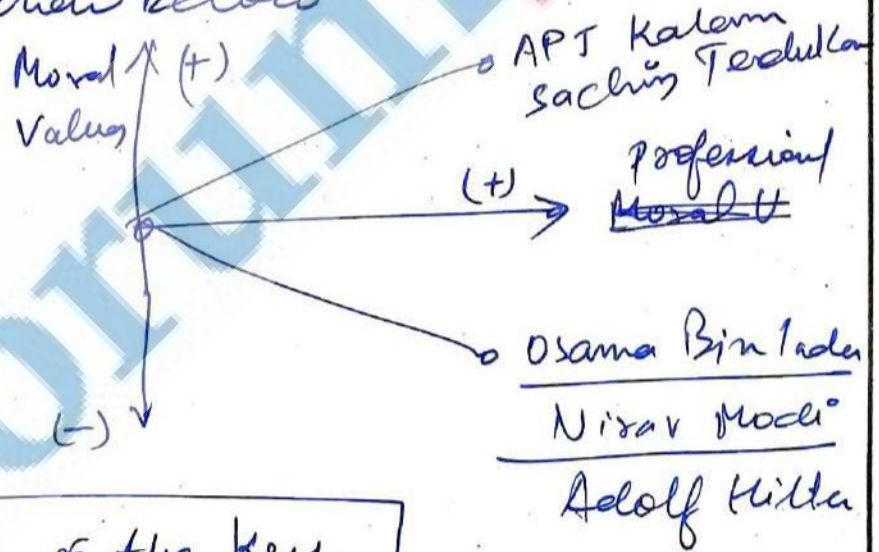 below
Moral (+)
Values
APJ Kalam
Sachin Tendulkar
(+)
Professional
Moral V
Osama Bin laden
Nirav Modi
(-)
Adolf Hitler
of the key